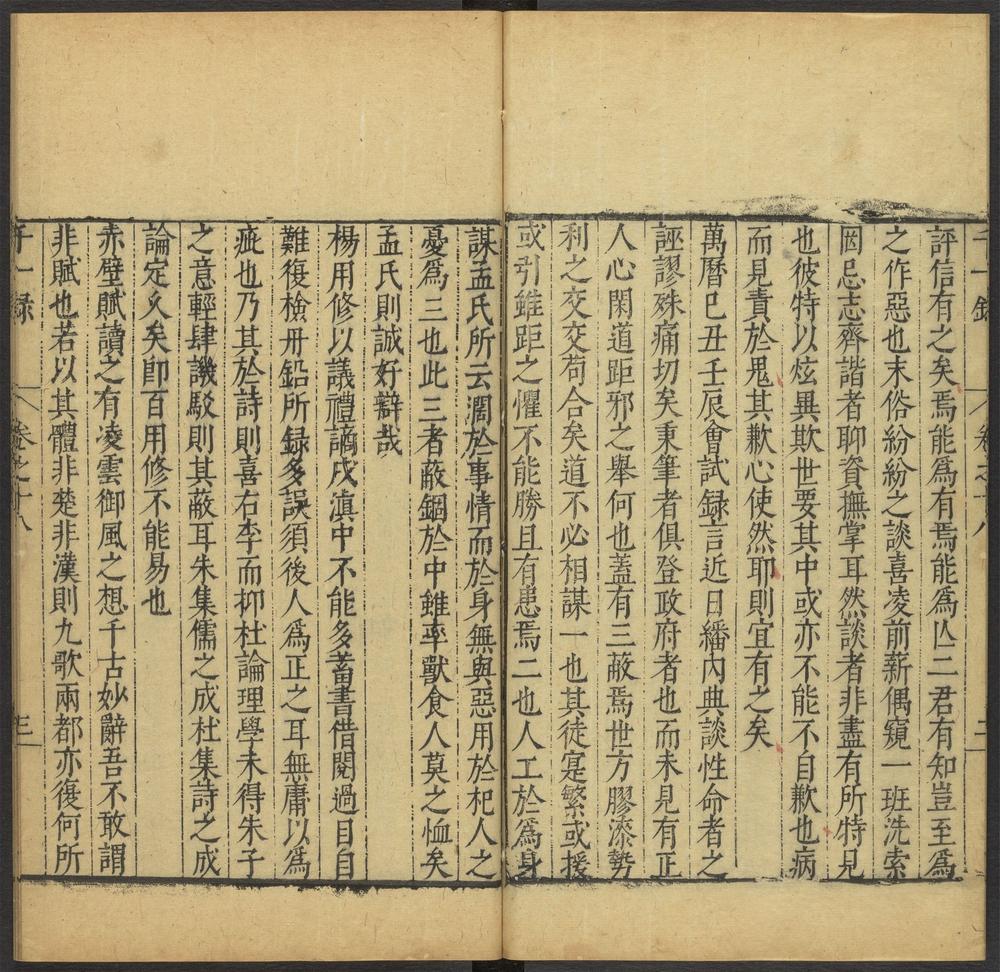 千一錄 卷之十八 二
評信有之矣焉能為有焉能為亾二君有知豈至為
之作惡也末俗紛紛之談喜凌前薪偶窺一班洗索
囡忌志齊諧者聊資撫掌耳然談者非盡有所特見
也彼特以炫異欺世要其中或亦不能不自歉也病
而見責於鬼其歉心使然耶則宜有之矣
萬曆己丑壬辰會試録言近日繙內典談性命者之
誣謬殊痛切矣秉筆者俱登政府者也而未見有正
人心閑道距邪之舉何也蓋有三蔽焉世方膠漆勢
利之交交苟合矣道不必相謀一也其徒寔繁或援
或引雖距之懼不能勝且有患焉二也人工於為身
謀孟氏所云濶於事情而於身無與惡用於杞人之
憂為三也此三者蔽錮於中雖率獸食人莫之恤矣
孟氏則誠好辯哉
楊用修以議禮謫戍滇中不能多蓄書借閱過目自
難復檢冊鉛所録多誤須後人為正之耳無庸以為
疵也乃其於詩則喜右李而抑杜論理學未得朱子
之意輕肆譏駁則其蔽耳朱集儒之成杜集詩之成
論定乆矣卽百用修不能易也
赤壁賦讀之有凌雲御風之想千古妙辭吾不敢謂
非賦也若以其體非楚非漢則九歌兩都亦復何所
千一録 卷之十八 三